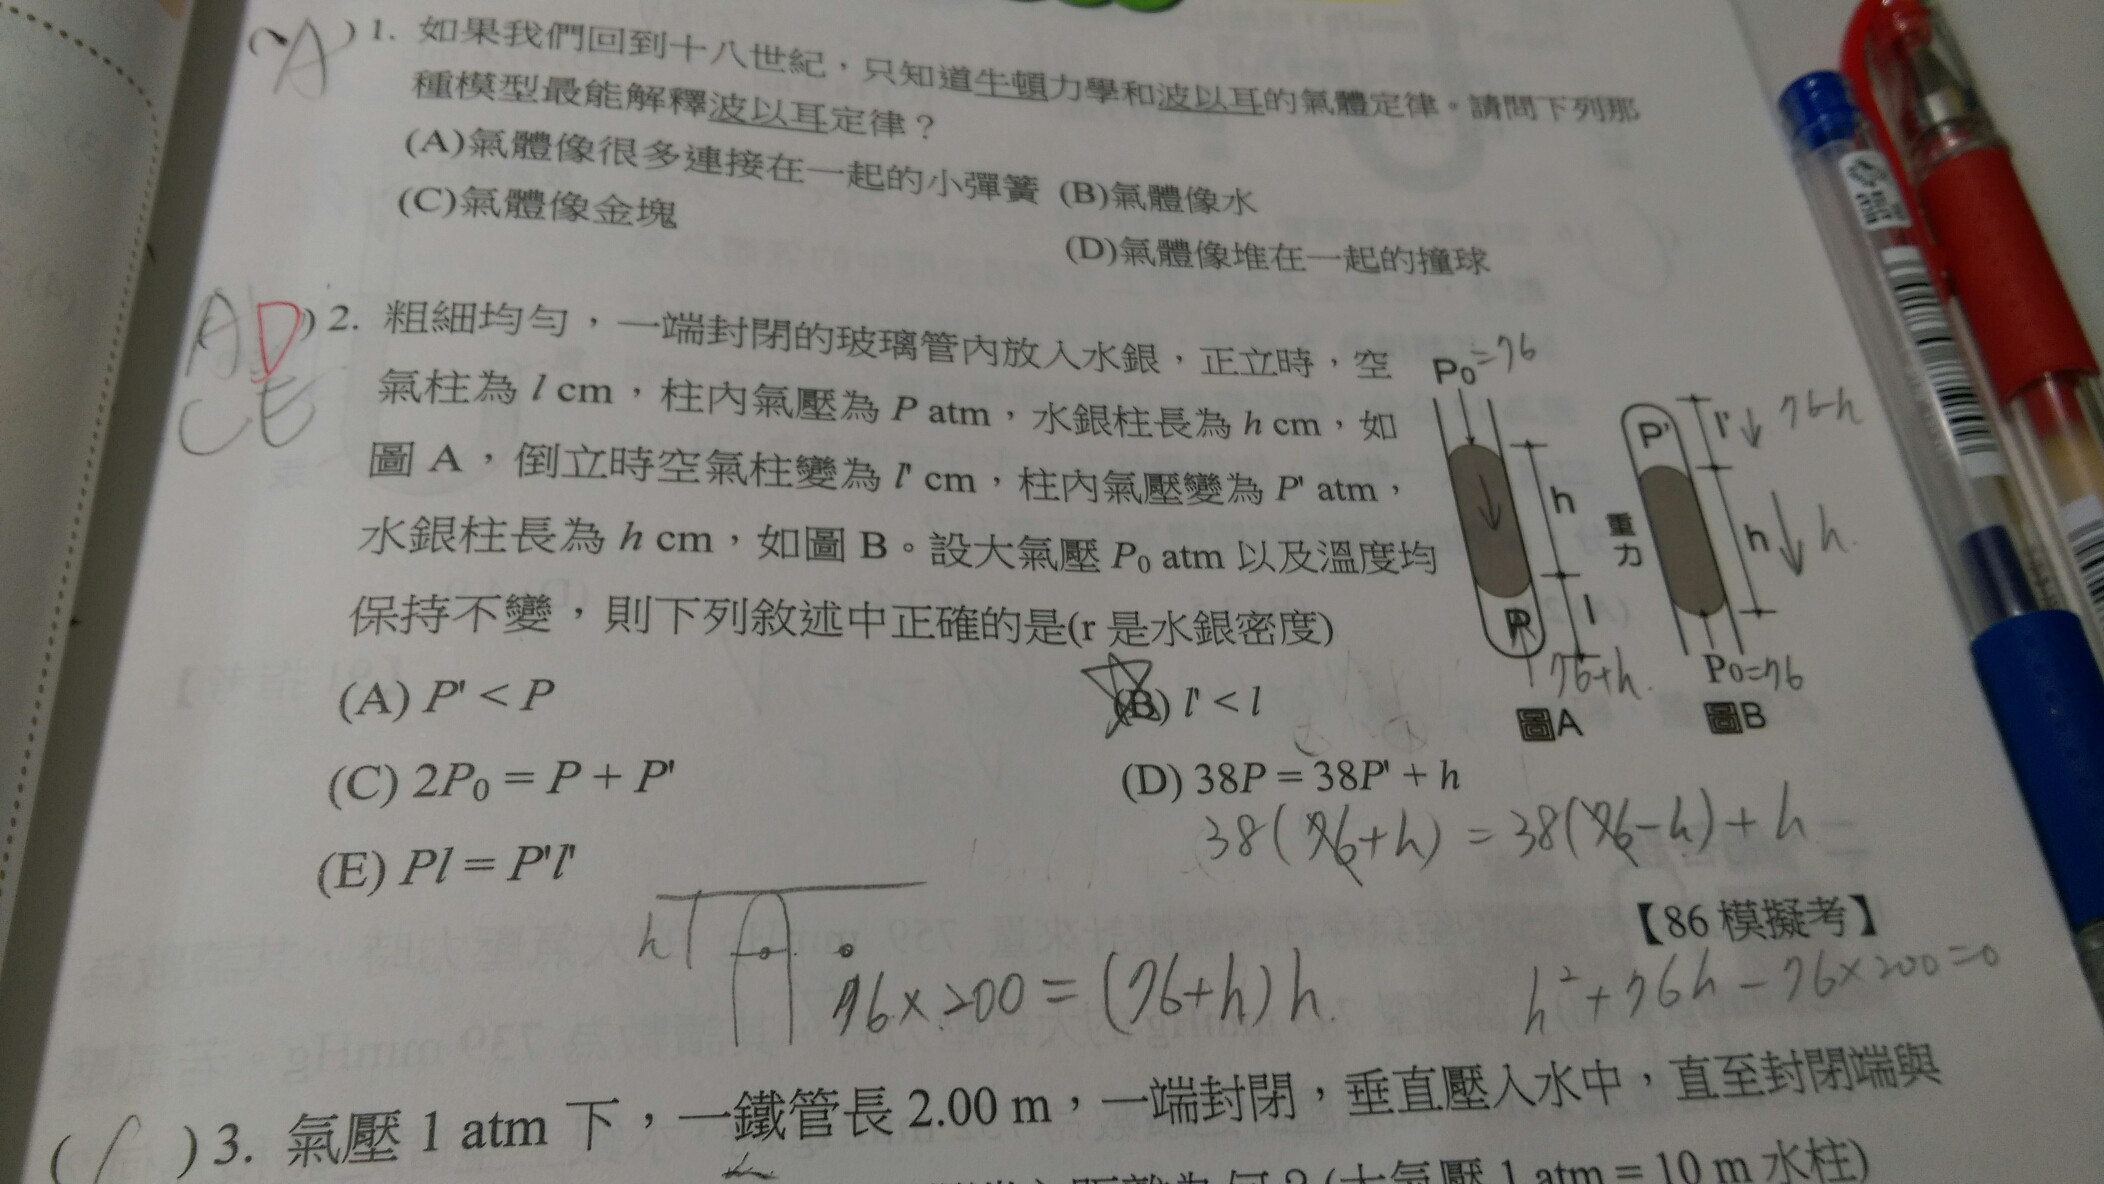 (A) 1. 如果我們回到十八世紀，只知道牛頓力學和波以耳的氣體定律。請問下列那
種模型最能解釋波以耳定律？
(A)氣體像很多連接在一起的小彈簧 (B)氣體像水
(C)氣體像金塊
(D)氣體像堆在一起的撞球
AD
CE
) 2. 粗細均勻，一端封閉的玻璃管內放入水銀，正立時，空
氣柱為 l cm，柱內氣壓為 P atm，水銀柱長為 h cm，如
圖 A，倒立時空氣柱變為 l' cm，柱內氣壓變為 P' atm，
水銀柱長為 h cm，如圖 B。設大氣壓 P₀ atm 以及溫度均
保持不變，則下列敘述中正確的是(r 是水銀密度)
P₀=76
h
l
76+h.
圖A
重力
P'
l' ↓ 76-h
h ↓ h.
P₀=76
圖B
(A) P' < P
(B) l' < l
(C) 2P₀ = P + P'
(D) 38P = 38P' + h
38(76+h) = 38(76-h)+h
(E) Pl = P'l'
【86 模擬考】
h
76×200 = (76+h)h.
h²+76h-76×200=0
( ) 3. 氣壓 1 atm 下，一鐵管長 2.00 m，一端封閉，垂直壓入水中，直至封閉端與
距離為何？(大氣壓 1 atm = 10 m 水柱)